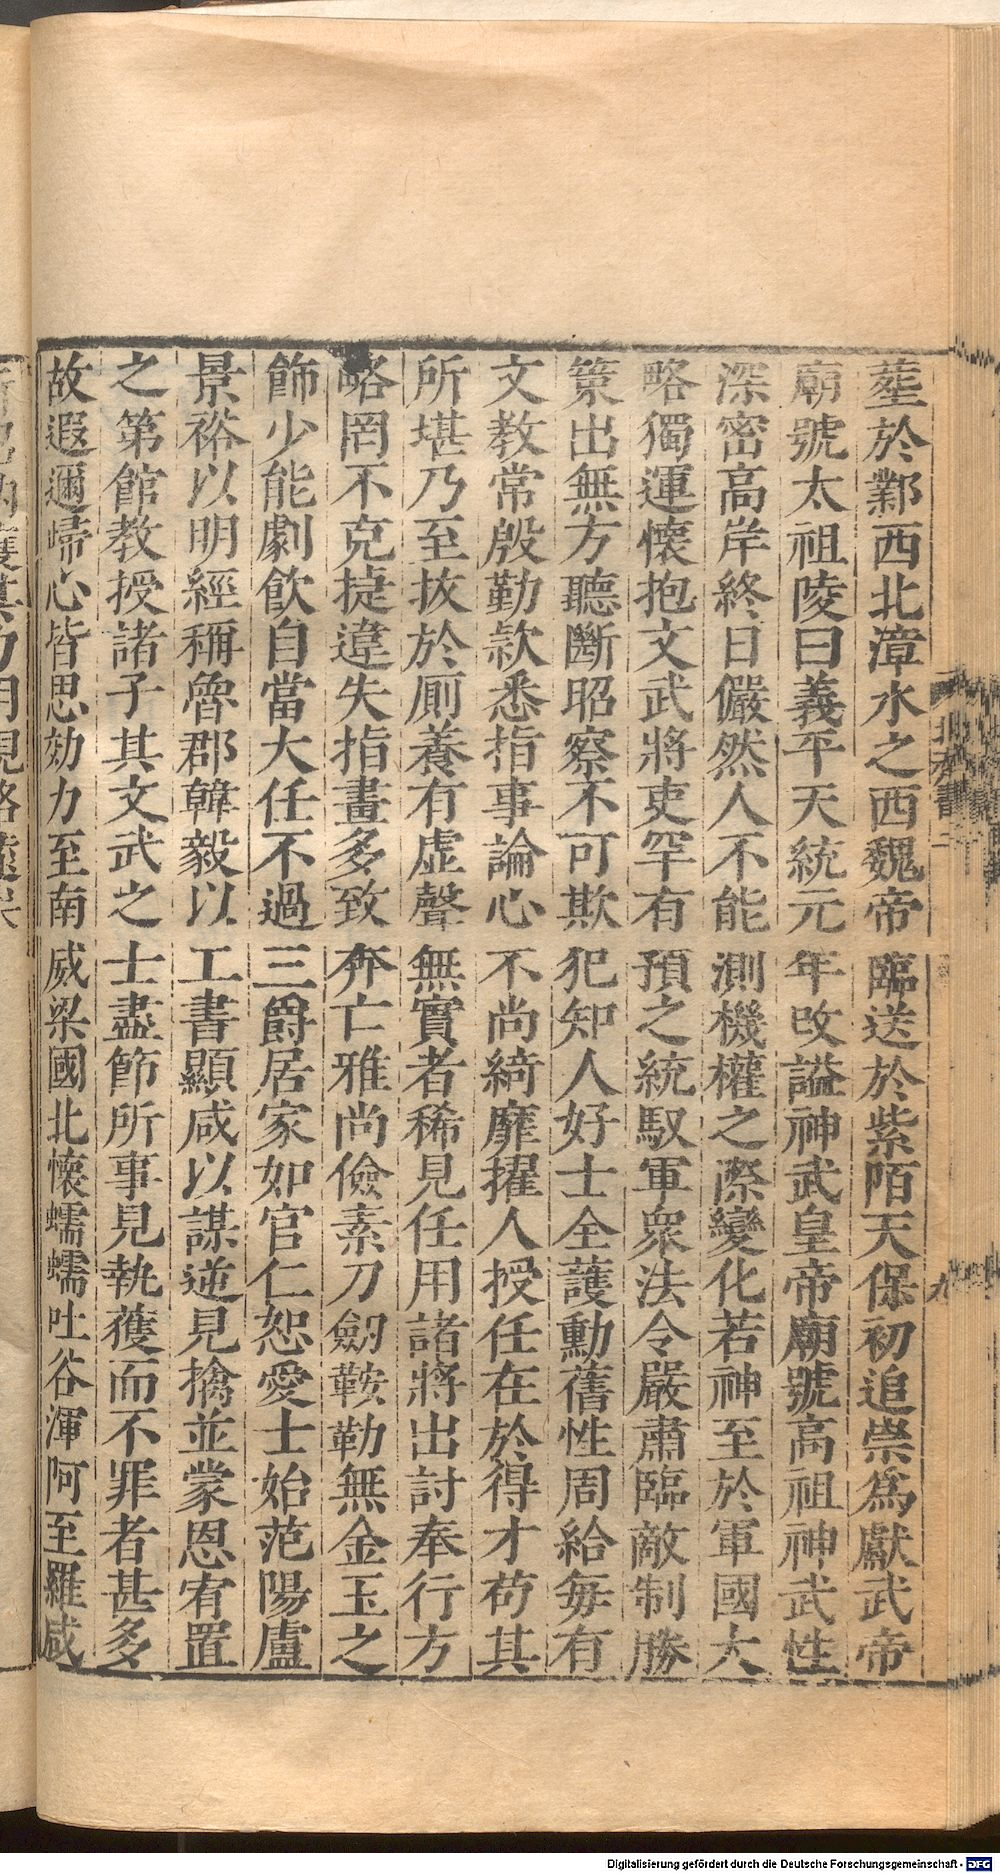 塟於鄴西北漳水之西魏帝臨送於紫陌天保初追崇爲獻武帝
廟號太祖陵曰義平天統元年改謚神武皇帝廟號高祖神武性
深密高岸終日儼然人不能測機權之際變化若神至於軍國大
略獨運懷抱文武將吏罕有預之統馭軍衆法令嚴肅臨敵制勝
策出無方聽斷昭察不可欺犯知人好士全護勳舊性周給每有
文教常殷勤款悉指事論心不尚綺靡擢人授任在於得才苟其
所堪乃至拔於厠養有虛聲無實者稀見任用諸將出討奉行方
略罔不克捷違失指畫多致奔亡雅尚儉素刀劔鞍勒無金玉之
飾少能劇飲自當大任不過三爵居家如官仁恕愛士始范陽盧
景裕以明經稱魯郡韓毅以工書顯咸以謀逆見擒並蒙恩宥置
之第館教授諸子其文武之士盡節所事見執獲而不罪者甚多
故遐邇歸心皆思効力至南威梁國北懷蠕蠕吐谷渾阿至羅咸
北齊書二
九
Digitalisierung gefördert durch die Deutsche Forschungsgemeinschaft - DFG